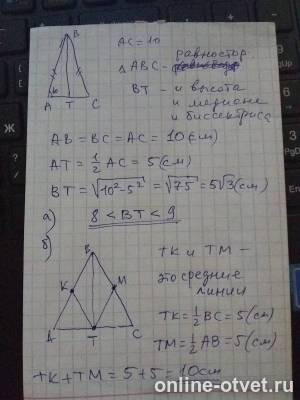 B
AC = 10
△ABC - равностор.
BT - и высота
и медиана
и биссектриса
A T C
AB = BC = AC = 10 (см)
AT = 1/2 AC = 5 (см)
BT = √(10² - 5²) = √75 = 5√3 (см)
а) 8 < BT < 9
б)
B
TK и TM -
это средние
линии
K M
TK = 1/2 BC = 5 (см)
A T C
TM = 1/2 AB = 5 (см)
TK + TM = 5 + 5 = 10см
online-otvet.ru